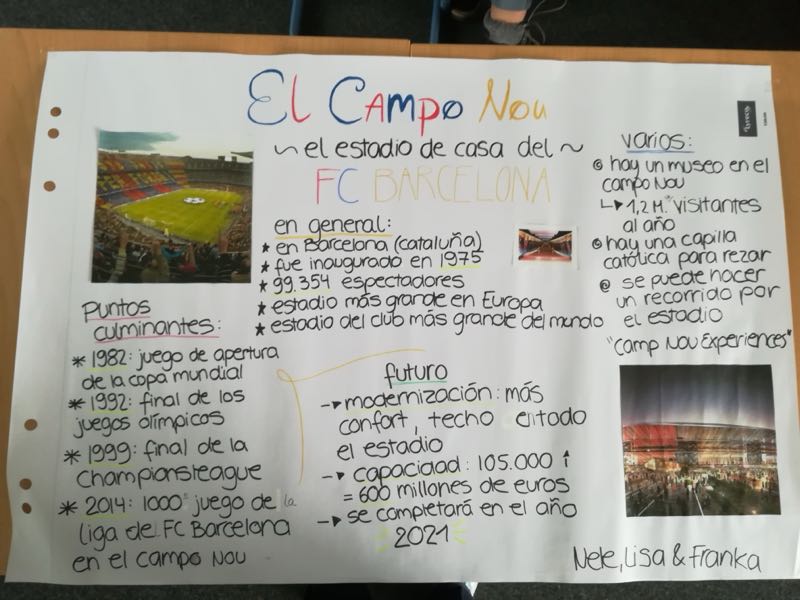 El Campo Nou
~ el estadio de casa del ~
FC BARCELONA
en general:
* en Barcelona (cataluña)
* fue inaugurado en 1975
* 99.354 espectadores
* estadio más grande en Europa
* estadio del club más grande del mundo
varios:
hay un museo en el
campo Nou
↳ 1,2 M. visitantes
al año
hay una capilla
católica para rezar
se puede hacer
un recorrido por
el estadio
"Camp Nou Experiences"
puntos
culminantes:
* 1982: juego de apertura
de la copa mundial
* 1992: final de los
juegos olímpicos
* 1999: final de la
Championsleague
* 2014: 1000° juego de la
liga del FC Barcelona
en el campo Nou
futuro
-> modernización: más
confort, techo en todo
el estadio
-> capacidad: 105.000 ↑
= 600 millones de euros
-> se completará en el año
2021
Nele, Lisa & Franka